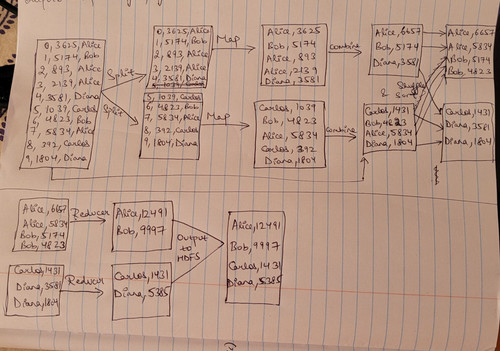 0, 3625, Alice
1, 5174, Bob
2, 893, Alice
3, 2139, Alice
4, 3581, Diana
5, 1039, Carlos
6, 4823, Bob
7, 5834, Alice
8, 392, Carlos
9, 1804, Diana
Split
Split
0, 3625, Alice
1, 5174, Bob
2, 893, Alice
3, 2139, Alice
4, 3581, Diana
5, 1039, Carlos
6, 4823, Bob
7, 5834, Alice
8, 392, Carlos
9, 1804, Diana
Map
Map
Alice, 3625
Bob, 5174
Alice, 893
Alice, 2139
Diana, 3581
Carlos, 1039
Bob, 4823
Alice, 5834
Carlos, 392
Diana, 1804
Combine
Combine
Alice, 6657
Bob, 5174
Diana, 3581
Carlos, 1431
Bob, 4823
Alice, 5834
Diana, 1804
Shuffle
&
Alice, 6657
Alice, 5834
Bob, 5174
Bob, 4823
Carlos, 1431
Diana, 3581
Diana, 1804
Alice, 6657
Alice, 5834
Bob, 5174
Bob, 4823
Carlos, 1431
Diana, 3581
Diana, 1804
Reducer
Reducer
Alice, 12491
Bob, 9997
Carlos, 1431
Diana, 5385
Output
to
HDFS
Alice, 12491
Bob, 9997
Carlos, 1431
Diana, 5385